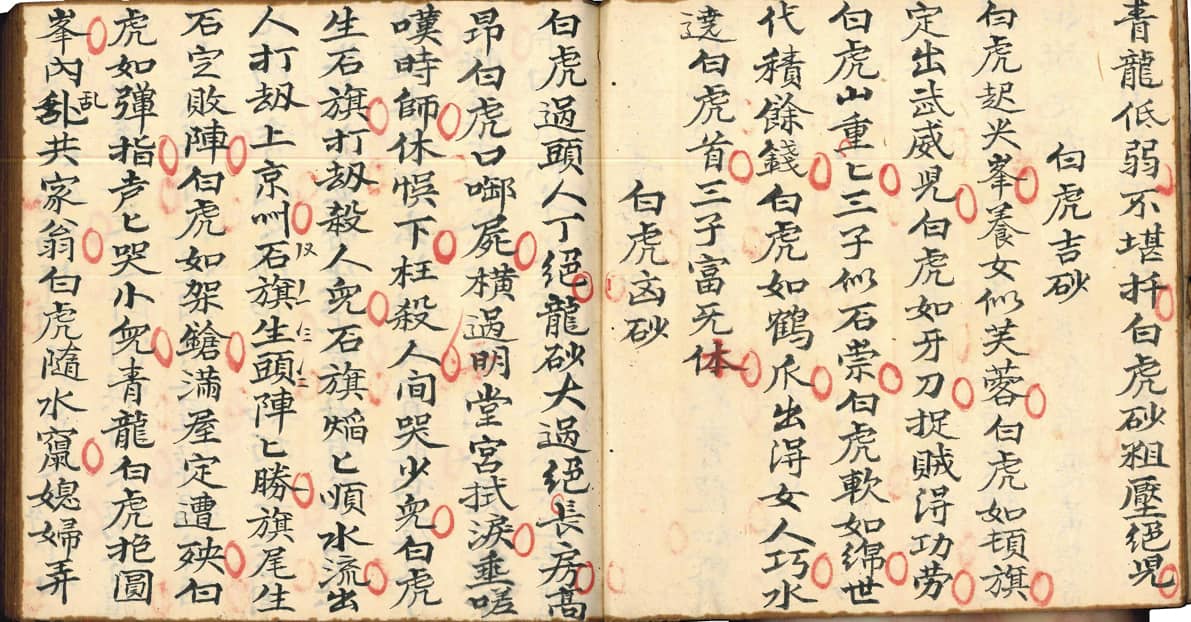 青龍低弱不堪扦白虎砂粗壓絕児
白虎吉砂
白虎起尖峯養女似芙蓉白虎如頓旗
定出武威児白虎如牙刀捉賊淂功劳
白虎山重〻三子似石崇白虎軟如綿世
代積餘錢白虎如鶴爪出淂女人巧水
遶白虎首三子富死休
白虎凶砂
白虎過頭人丁絕龍砂大過絕長房高
昂白虎口啣屍橫過明堂宮拭淚垂嗟
嘆時師休悮下枉殺人间哭少兒白虎
生石旗打刼殺人兒石旗焰〻順水流出
人打刼上京州石旗生頭陣〻勝旗尾生
石定敗陣白虎如架鎗滿屋定遭殃白
虎如彈指声〻哭小兒青龍白虎抱圓
峯內乱乱共家翁白虎隨水竄媳婦弄